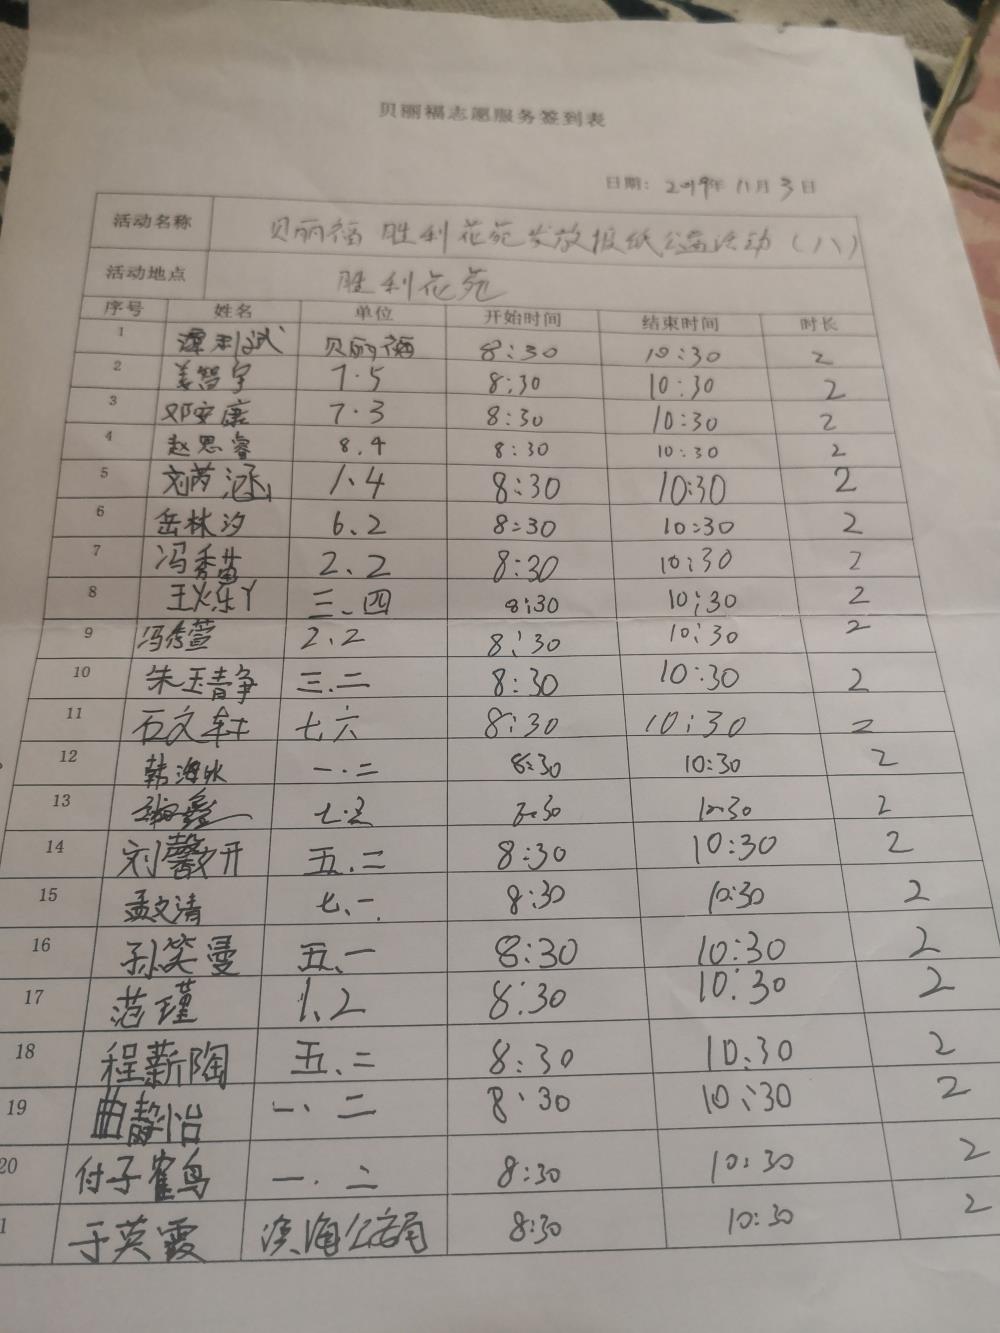 贝丽福志愿服务签到表
日期: 2019年 11月 3日
活动名称 贝丽福 胜利花苑发放报纸公益活动(八)
活动地点 胜利花苑
序号 姓名 单位 开始时间 结束时间 时长
1 谭利斌 贝丽福 8:30 10:30 2
2 姜智宇 7.5 8:30 10:30 2
3 邓安康 7.3 8:30 10:30 2
4 赵思睿 8.4 8:30 10:30 2
5 刘芮涵 1.4 8:30 10:30 2
6 岳林汐 6.2 8:30 10:30 2
7 冯秀苗 2、2 8:30 10:30 2
8 三、四 8:30 10:30 2
9 冯传萱 2.2 8:30 10:30 2
10 朱玉静 三.二 8:30 10:30 2
11 石文轩 七六 8:30 10:30 2
12 韩海冰 一.二 8:30 10:30 2
13 8:30 10:30 2
14 刘馨文开 五.二 8:30 10:30 2
15 孟文清 七.一 8:30 10:30 2
16 孙笑曼 五、一 8:30 10:30 2
17 范瑾 1、2 8:30 10:30 2
18 程薪陶 五.二 8:30 10:30 2
19 曲静怡 一、二 8:30 10:30 2
20 付子鹤 一.二 8:30 10:30 2
1 于英霞 滨海公寓 8:30 10:30 2